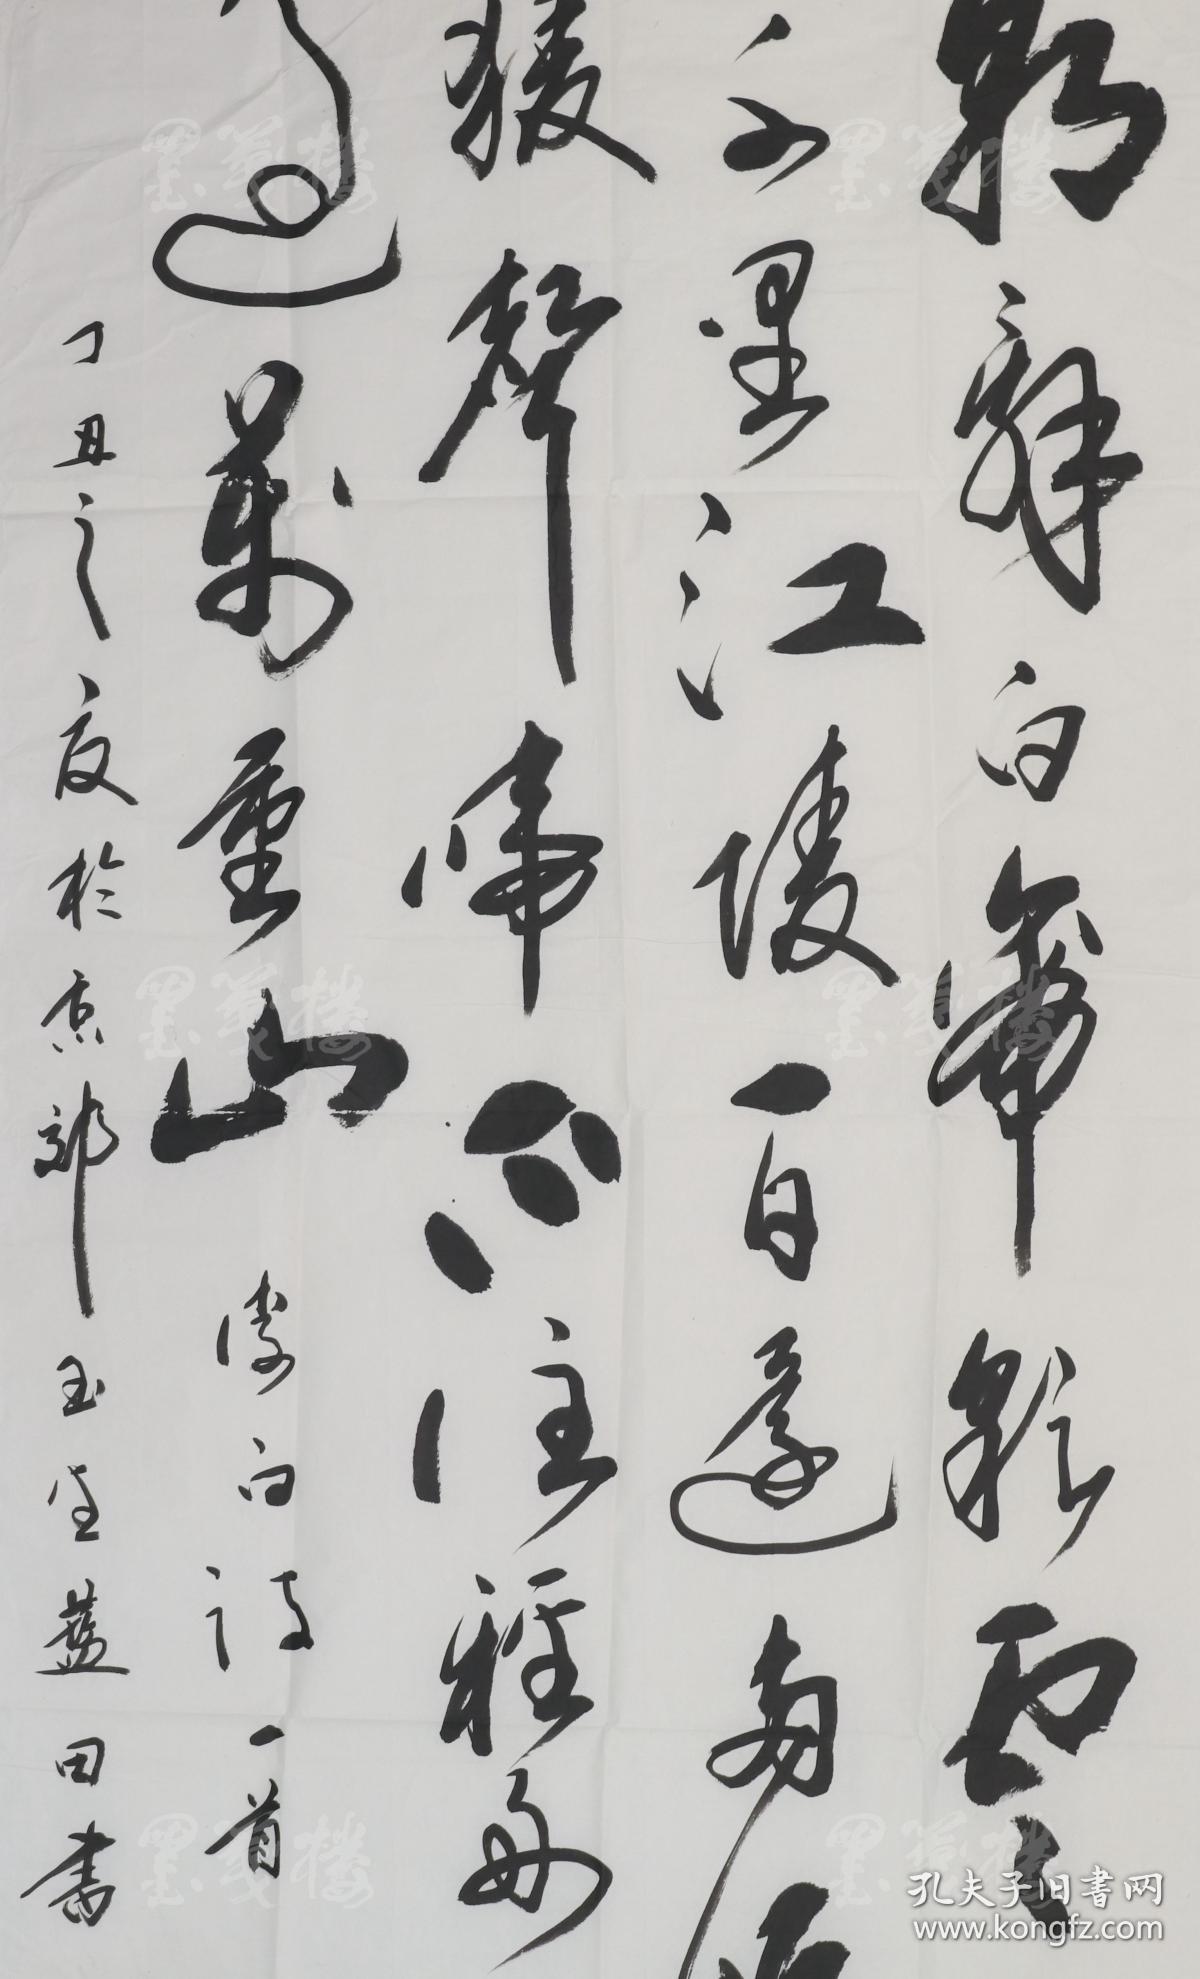 朝辭白帝彩雲
千里江陵一日還兩岸
猿聲啼不住輕舟
過萬重山 李白詩一首
丁丑之夏於京郊玉藍田書
孔夫子旧書网
www.kongfz.com